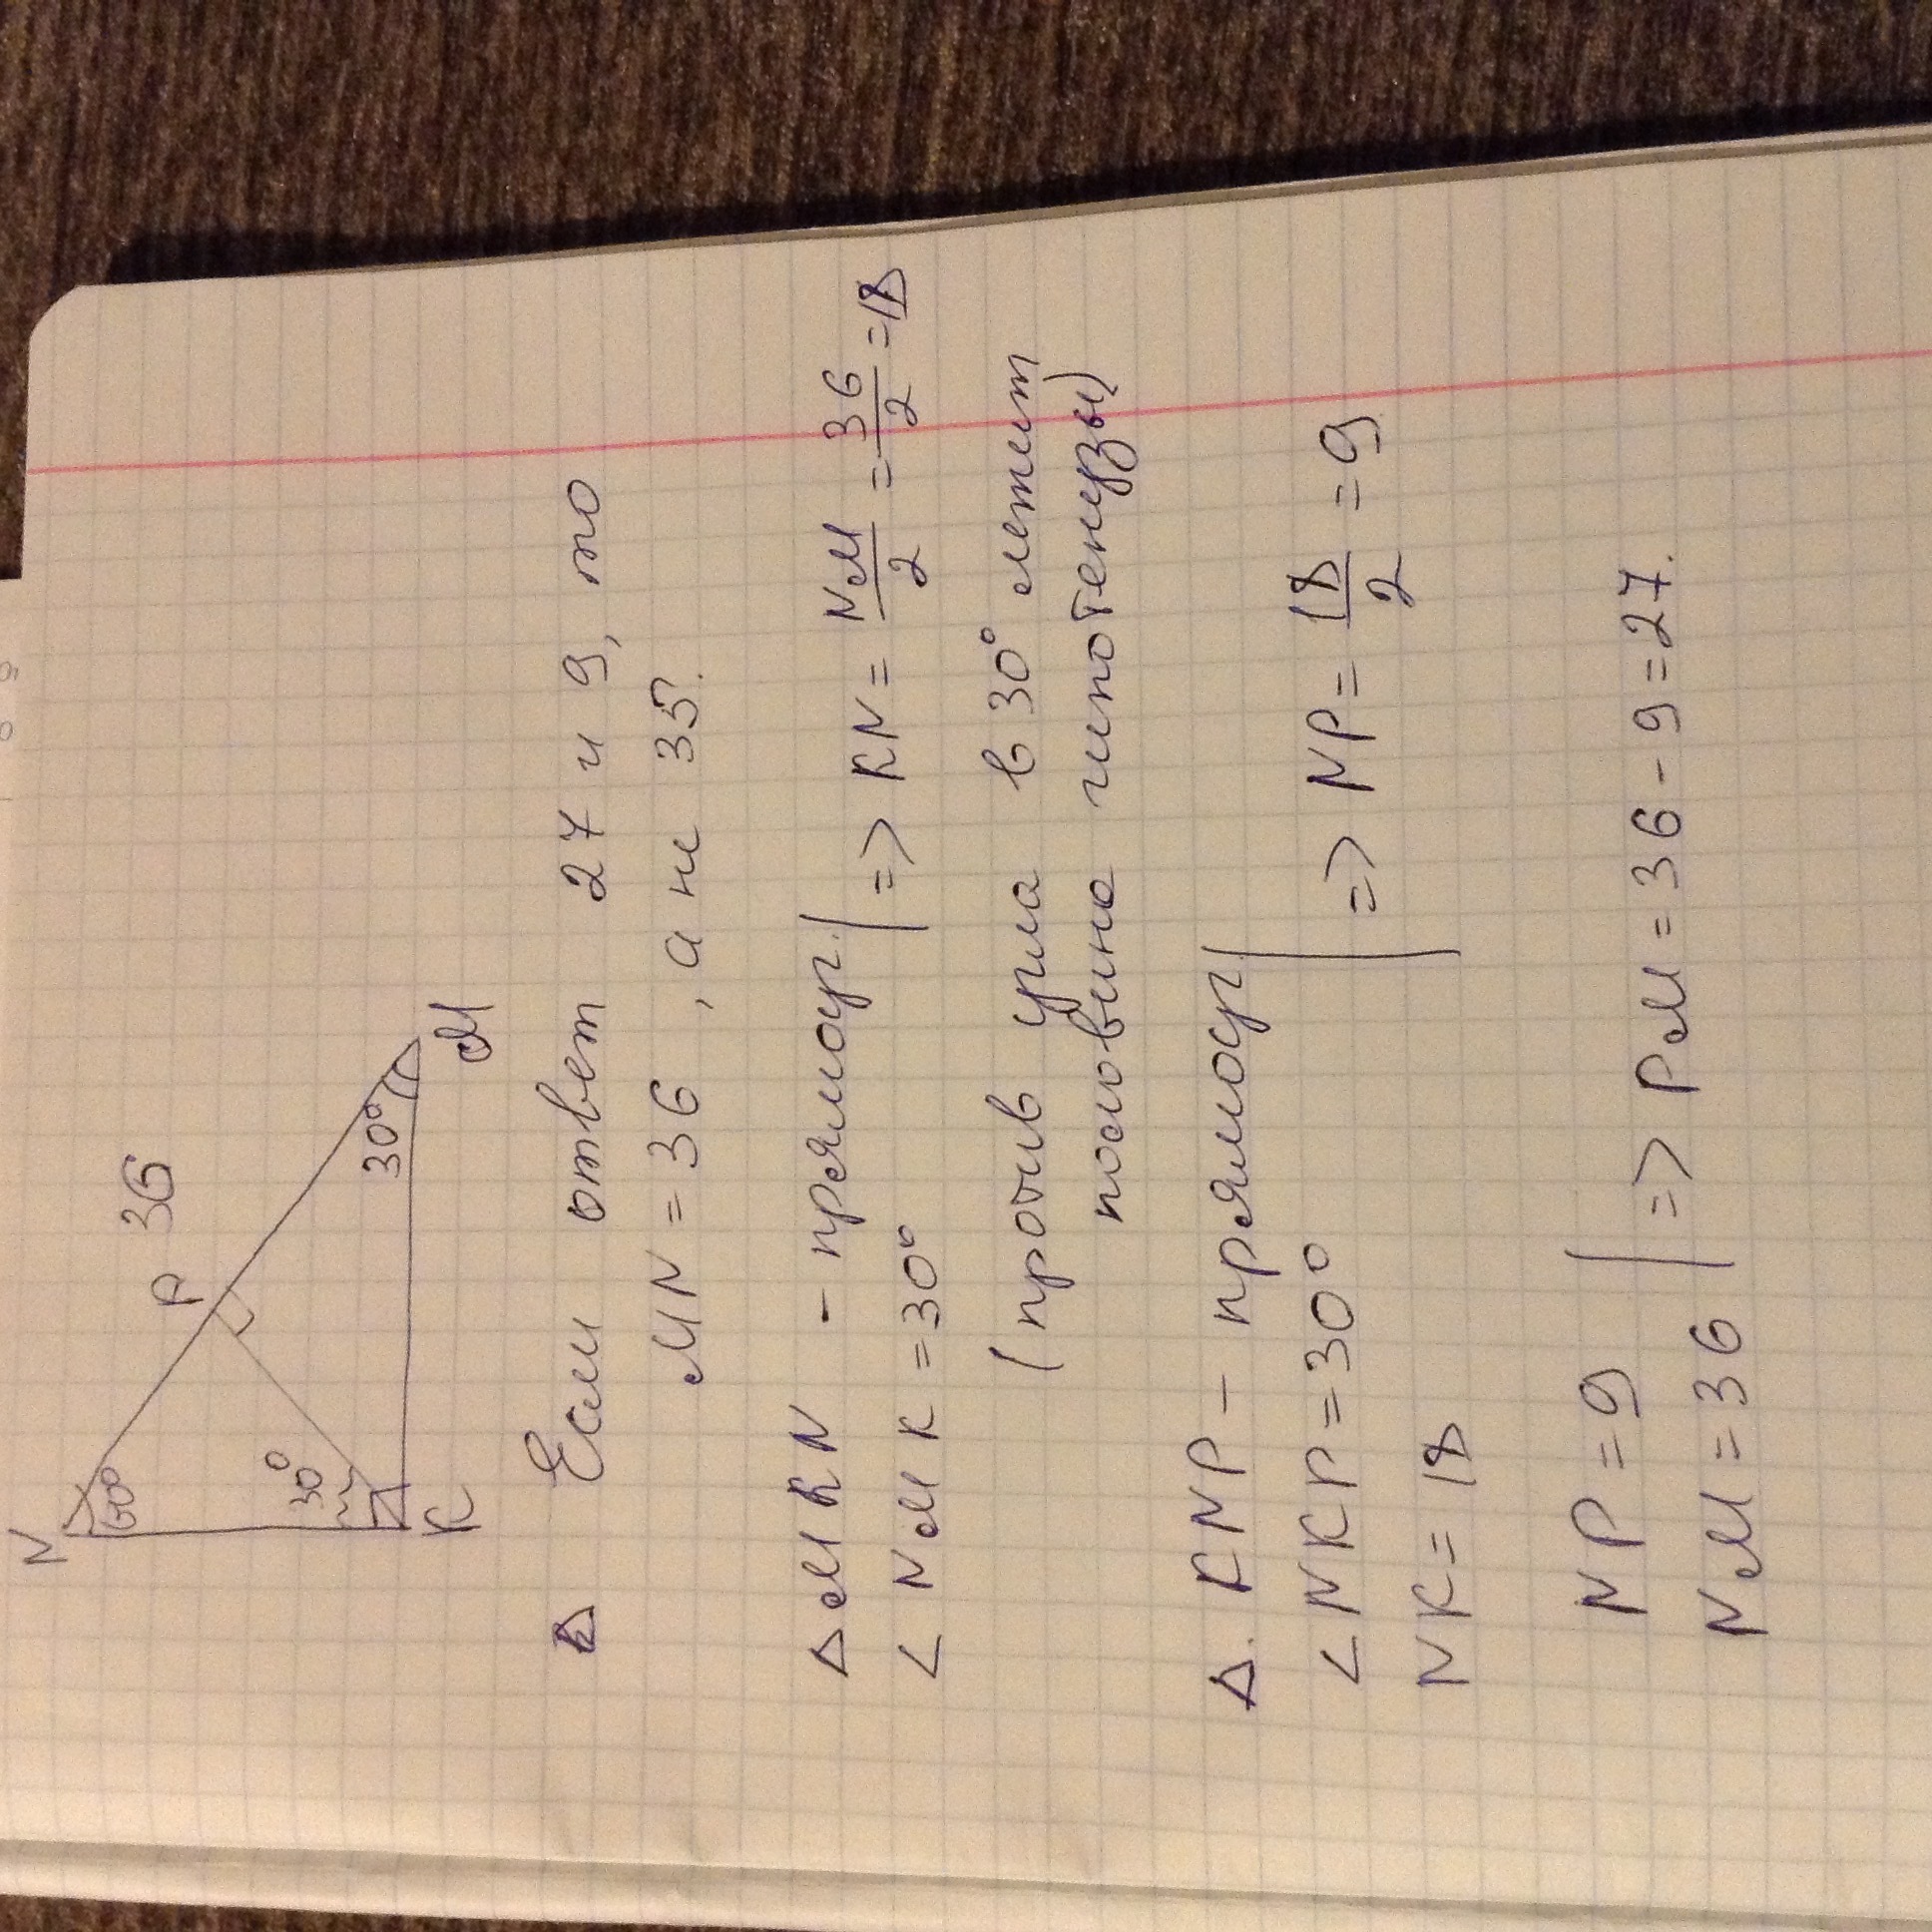 N
60°
P
36
30°
30°
K
M
Если ответ 27 и 9, то
MN = 36, а не 35.
△ MKN - прямоуг. | => KN = NM/2 = 36/2 = 18
∠ NMK = 30°
(против угла в 30° лежит
половина гипотенузы)
△. KNP - прямоуг.
∠ NKP = 30° | => NP = 18/2 = 9
NK = 18
NP = 9
NM = 36 | => PM = 36 - 9 = 27.